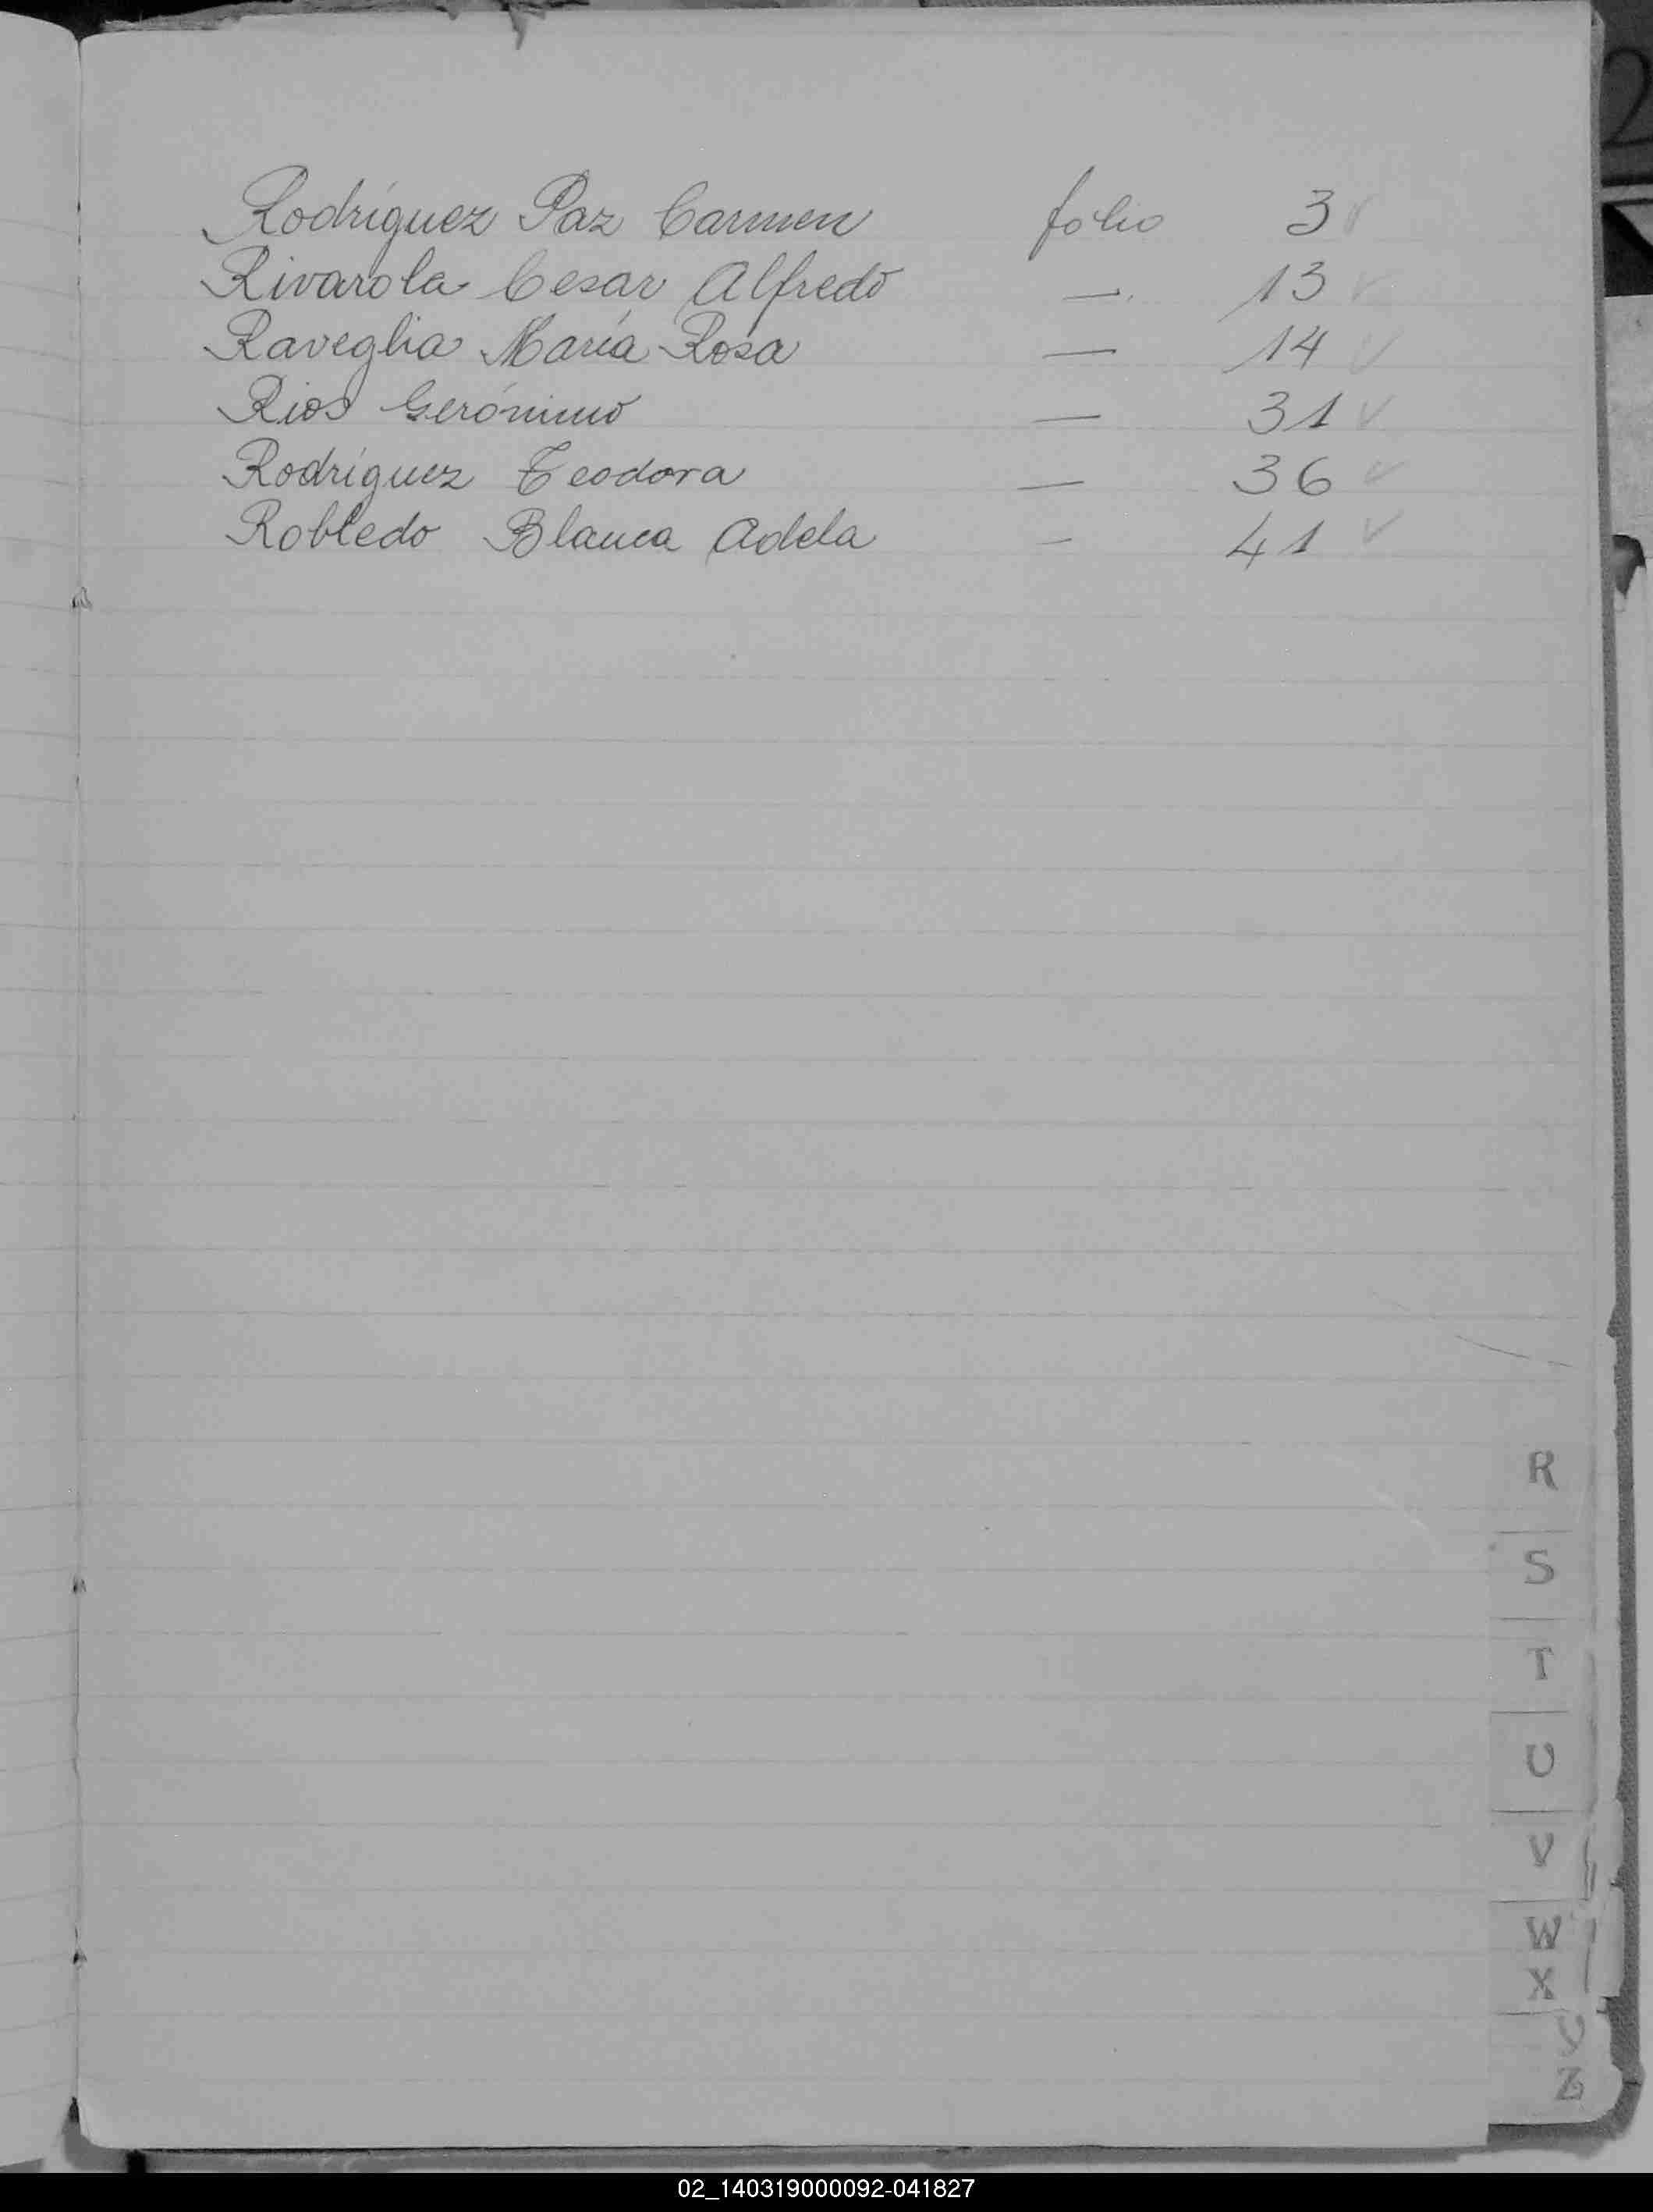 Rodríguez Paz Carmen folio 3 ✓
Rivarola Cesar Alfredo — 13 ✓
Raveglia María Rosa — 14 ✓
Rios Gerónimo — 31 ✓
Rodríguez Teodora — 36 ✓
Robledo Blanca Adela — 41 ✓
R
S
T
U
V
W
X
Y
Z
02_140319000092-041827